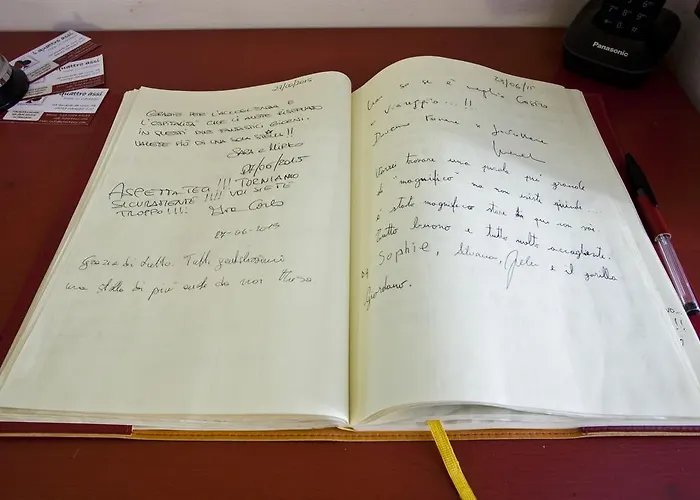 27/06/2015
GRAZIE PER L'ACCOGLIENZA E
L'OSPITALITÀ CHE CI AVETE RISERVATO
IN QUESTI DUE FANTASTICI GIORNI.
VALETE PIÙ DI UNA SOLA STELLA!!
SARA E MIRKO
27/06/2015
ASPETTATECI!!! TORNIAMO
SICURAMENTE!!!! VOI SIETE
TROPPO!!!.
27-06-2015
Grazie di tutto. Tutti gentilissimi
una stella in più anche da noi
29/06/15
se è meglio
o Viareggio...!!
Davvero
Vorrei trovare una parola più grande
di "magnifico" ma non esiste quindi...
è stato magnifico stare qui con voi
tutto buono e tutto molto accogliente.
Sophie, Silvana, e il gorilla
Giordano.
quattro assi
quattro assi
quattro assi
Panasonic